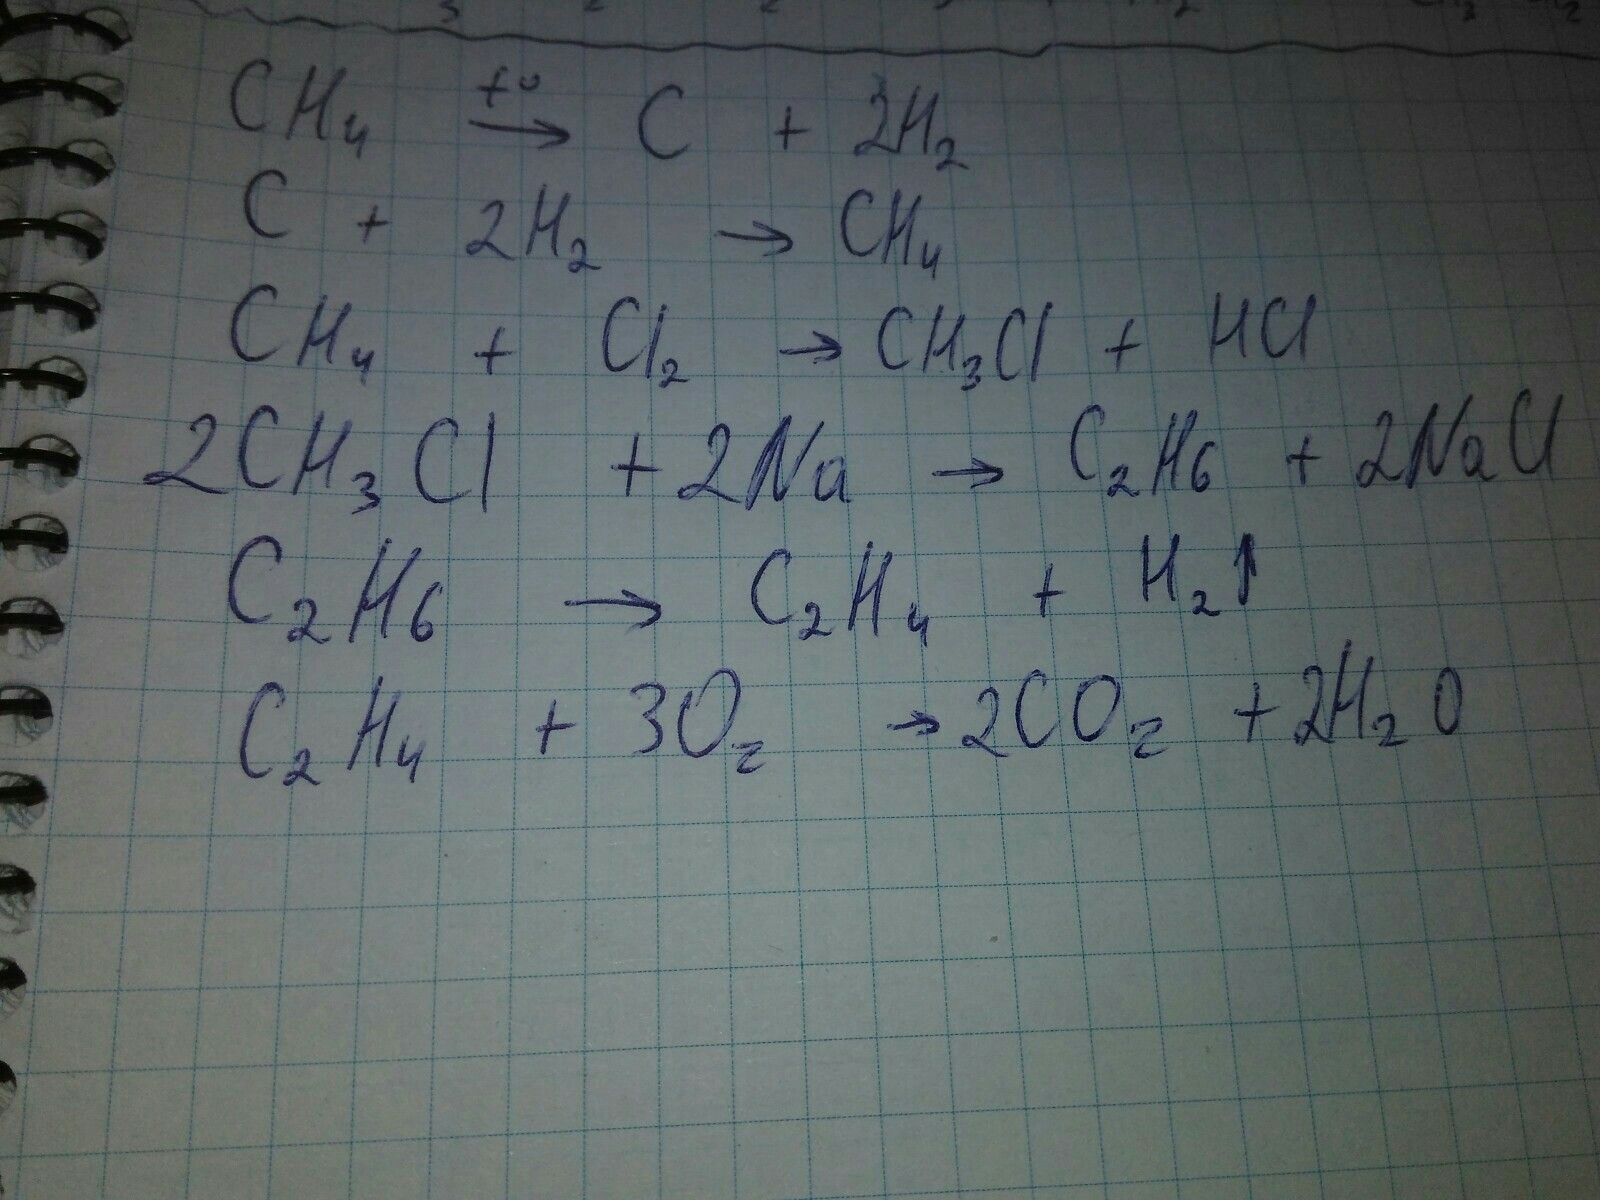 CH₄ —t°→ C + 2H₂
C + 2H₂ → CH₄
CH₄ + Cl₂ → CH₃Cl + HCl
2CH₃Cl + 2Na → C₂H₆ + 2NaCl
C₂H₆ → C₂H₄ + H₂↑
C₂H₄ + 3O₂ → 2CO₂ + 2H₂O